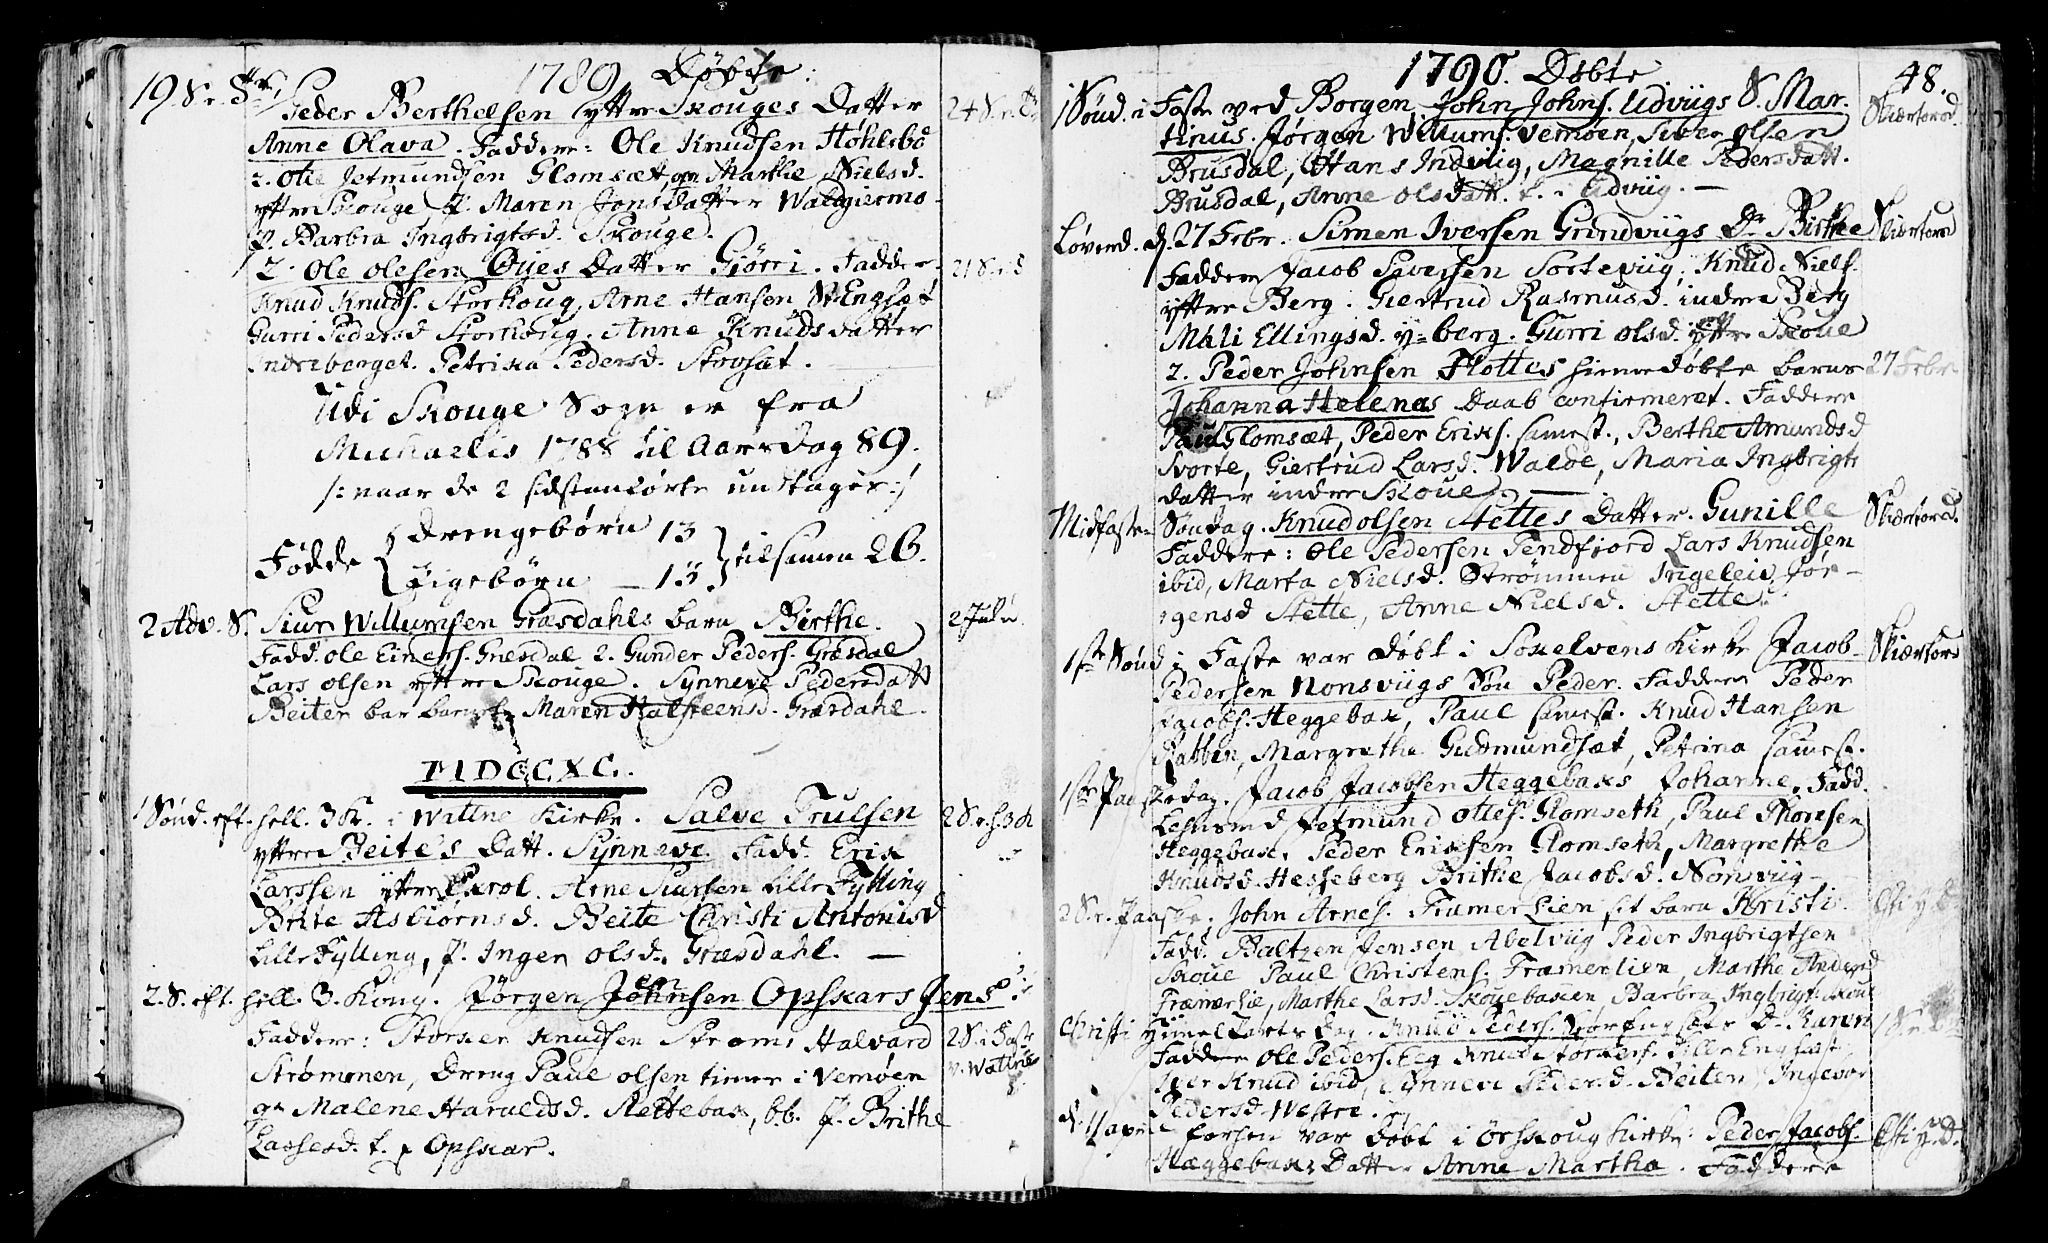 1789 Døbte:
19 S. e. 3tr. Peder Berthelsen yttre Skouges Datter 24 S. e.
Anne Olava. Faddere: Ole Knudsen Høhlebø
2. Ole Jetmundsen Glomsæt, Marthe Nielsd.
yttre Skouge P. Maren Jonsdatter Waldgiermo
P. Barbra Ingbrigtsd. Skouge.
2. Ole Olesen Øijes Datter Giørri. Faddere 21 S. e. 3
Knud Knuds. Storhoug, Arne Hansen St. Engsæt
Gurri Pedersd Storhoug. Anne Knudsdatter
Indreberget. Petrika Pedersd. Skogsæt.
Udi Skouge Sogn er fra
Michaelis 1788 til Aarsdag 89.
/: naar de 2 sidstanførte undtages :/
Fødde { Drengebørn 13 } tilsamen 26.
Pigebørn — 13
2 Adv. S. Siur Willumsen Græsdahls barn Birthe. 2 Jule
Fadd. Ole Einers. Græsdal 2. Gunder Peders. Græsdal
Lars Olsen yttre Skouge. Synneve Pedersdatt
Beiten bar barnet, Maren Halsteensd. Græsdahl.
MDCCXC.
1 Sønd. eft. hell. 3 K. i Watne Kirke. Salve Trulsen 2 S. e. h. 3 K
yttre Beites Datt. Synneve. Fadd. Erik
Larssen yttre Arne Siursen Lille Fylling
Brite Asbiørnsd. Beite Christi Antonisd
Lille Fylling, P. Inger Olsd. Græsdahl. —
2. S. eft. hell. 3. Kong. Jørgen Johnsen Opskars Jens
Faddere: Storker Knudsen Strøm, Halvard 2 S. i Faste
Strømmen, Dreng Paul Olsen tiener i Vemøen v. Watne
g. Malene Haraldsd. Stettebak, b.b. P. Brithe
Lassesd. t. p Opskar.
1790. Døbte 48.
1 Sønd. i Faste ved Borgen John Johns. Udviigs S. Mar- Skiærtorsd.
tinus. Jørgen Willums. Vemøen, Siver Olsen
Brusdal, Hans Indviig, Magnille Pedersdatt.
Brusdal, Anne Olsdatt. t. i Udviig. —
Løverd. d. 27 Febr. Simen Iversen Grindviigs Dr Birthe Skiærtorsd
Faddere Jacob Siversen Sorteviig, Knud Niels.
yttre Berg. Giertrud Rasmusd. indre Berg
Mali Ellingsd. y=berg. Gurri Olsd. yttre Skoue
2. Peder Johnsen Flottes hiemedøbte barns 27 Febr.
Johanna Helenas Daab confirmeret. Faddere
Glomsæt, Peder Eriks. samest., Berthe Amundsd
Svorte, Giertrud Larsd. Walde, Maria Ingbrigts
datter indre Skoue. —
Midfaste Søndag. Knud Olsen Stettes Datter. Gunille Skiærtorsd.
Faddere: Ole Pedersen Tendfjord Lars Knudsen
ibid, Marta Nielsd. Strømmen Ingeleiv Jør-
gensd Stette, Anne Nielsd. Stette.
1ste Sønd i Faste var døbt i Sokelvens Kirke Jacob Skiærtorsd
Pedersen Nonsviigs Søn Peder. Faddere Peder
Jacobs. Heggebak, Paul samest. Knud Hansen
Rabben, Margrethe Gudmundsæt, Petrina samest.
1ste Paaskedag. Jacob Jacobsen Heggebaks Johanne. Fadd.
Jetmund Olles. Glomseth, Paul Thomsen
Heggebak, Peder Eriksen Glomseth, Margrethe
Knudsd. Hesseberg Brithe Jacobsd. Nonsviig —
2 S. e. Paaske. John Arnes. Framerlien, sit barn Kristi.
Fadd. Baltzen Jensen Abelviig Peder Ingbrigtsen
Skoue Paul Christens. Framerlien, Marthe Andersd
Framerlie, Marthe Larsd. Skouebakken Barbra Ingbrigtsd Skoue
Christi Himelfarts Dag. Knud Peders. Dr Karen
Faddere Ole Peders. Knud Storkers. Lille Engsæt
Iver Knud ibid, Synneve Pedersd. Beiten, Ingebor
Pedersd. Westre.
d. 11 april var døbt i Ørskoug Kirke: Peder Jacobs.
Hæggebaks Datter Anne Martha. Faddere